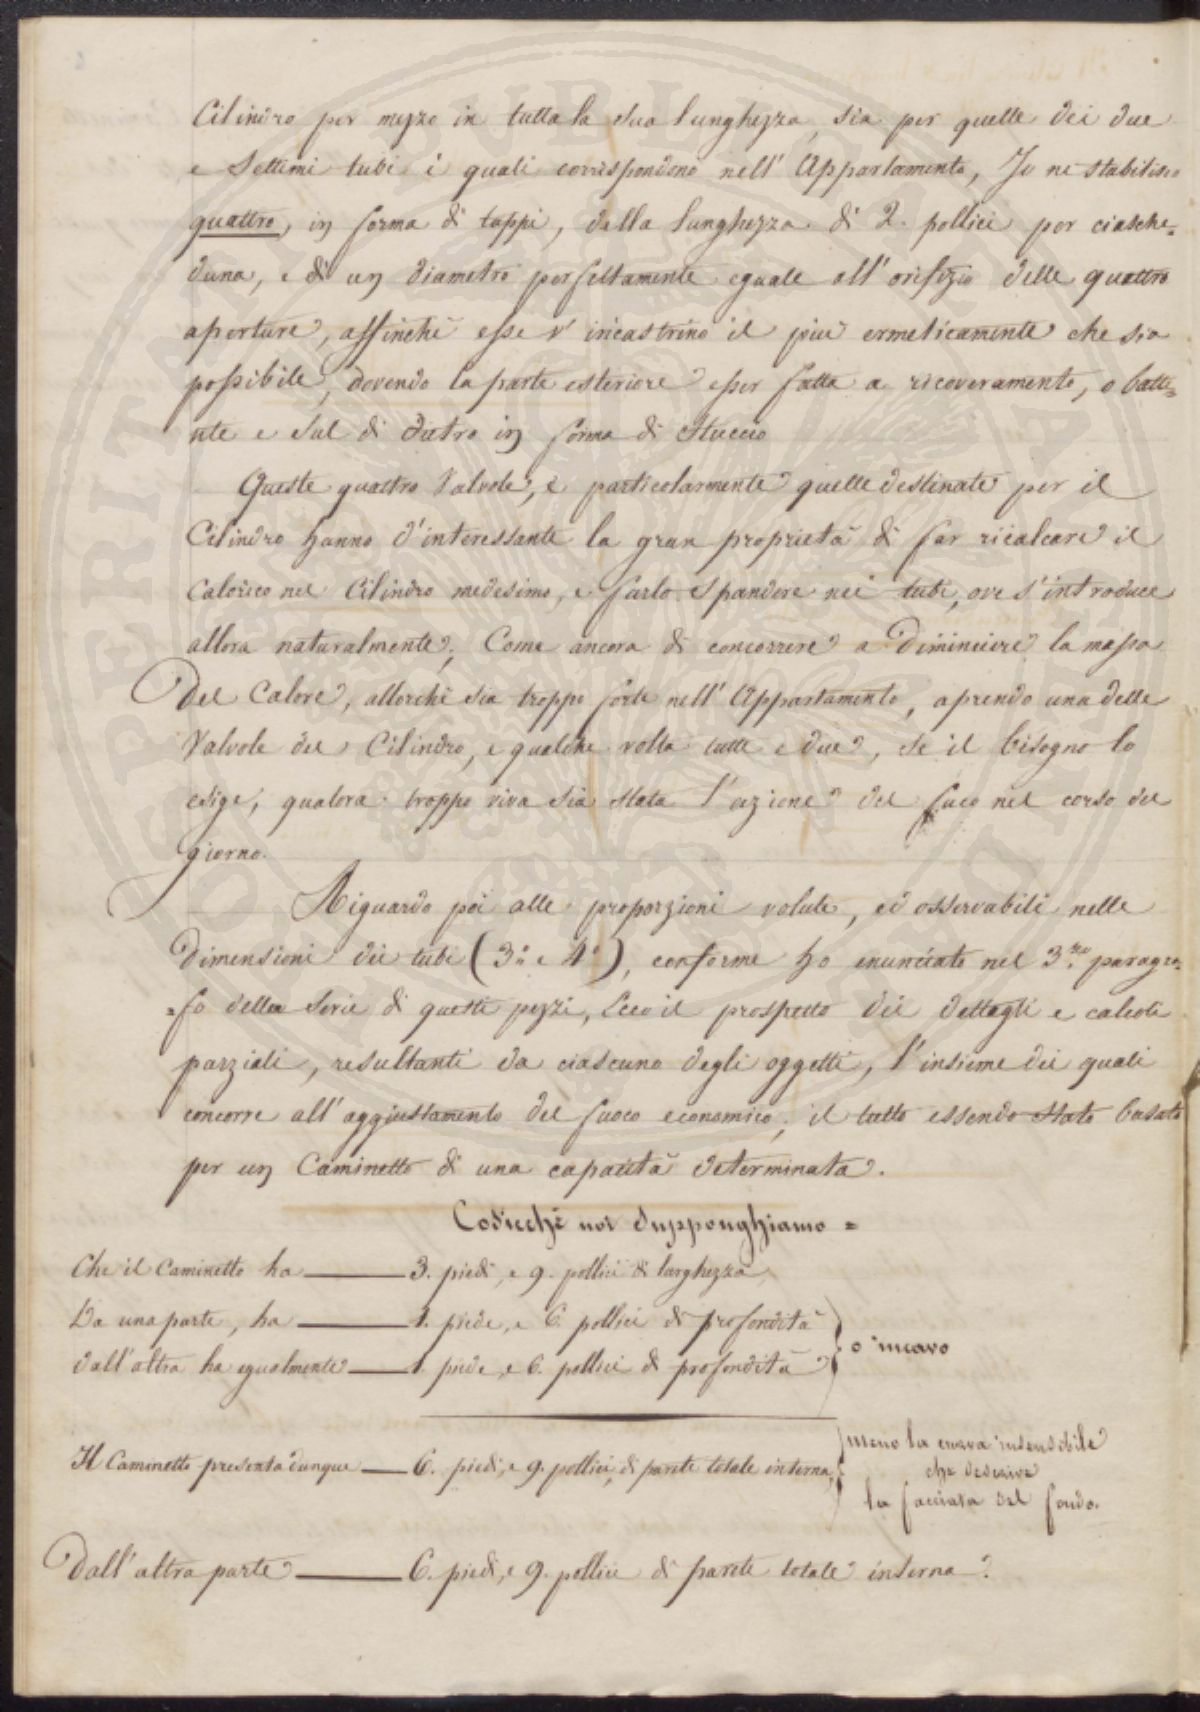 Cilindro per mezzo in tutta la sua lunghezza, sia per quelle dei due
e Settimi tubi i quali corrispondono nell' Appartamento, Io ne stabilisco
quattro, in forma di tappi, della lunghezza di 2. pollici per ciasche=
duna, e di un diametro perfettamente eguale all' orifizio delle quattro
aperture, affinchè esse v' incastrino il più ermeticamente che sia
possibile, dovendo la parte esteriore esser fatta a ricoveramento, o batte=
nte e sul di dietro in forma di stuccio
Queste quattro Valvole, e particolarmente quelle destinate per il
Cilindro hanno d'interessante la gran proprietà di far ricalcare il
Calorico nel Cilindro medesimo, e farlo spandere nei tubi, ove s'introduce
allora naturalmente; Come ancora di concorrere a Diminuire la massa
Del Calore, allorchè sia troppo forte nell' Appartamento, aprendo una delle
Valvole del Cilindro, e qualche volta tutte e due, se il bisogno lo
esige, qualora troppo viva sia stata l'azione del fuco nel corso del
giorno.
Riguardo poi alle proporzioni volute, ed osservabili nelle
Dimensioni dei tubi (3.º e 4.º), conforme ho enunciato nel 3.zo paragra=
=fo della Serie di questi pezzi, Ecco il prospetto dei dettagli e calcoli
parziali, resultanti da ciascuno degli oggetti, l'insieme dei quali
concorre all' aggiustamento del fuoco economico; il tutto essendo stato basato
per un Caminetto di una capacità determinata.
Cosicchè noi supponghiamo =
Che il Caminetto ha ——— 3. piedi, e 9. pollici di larghezza
Da una parte, ha ——— 1. piede, e 6. pollici di profondità
dall' altra ha egualmente ——— 1. piede, e 6. pollici di profondità } o incavo
Il Caminetto presenta dunque — 6. piedi, e 9. pollici, di parete totale interna, { meno la curva insensibile
che descrive
la facciata del fondo.
Dall' altra parte ——— 6. piedi, e 9. pollici di parete totale interna.